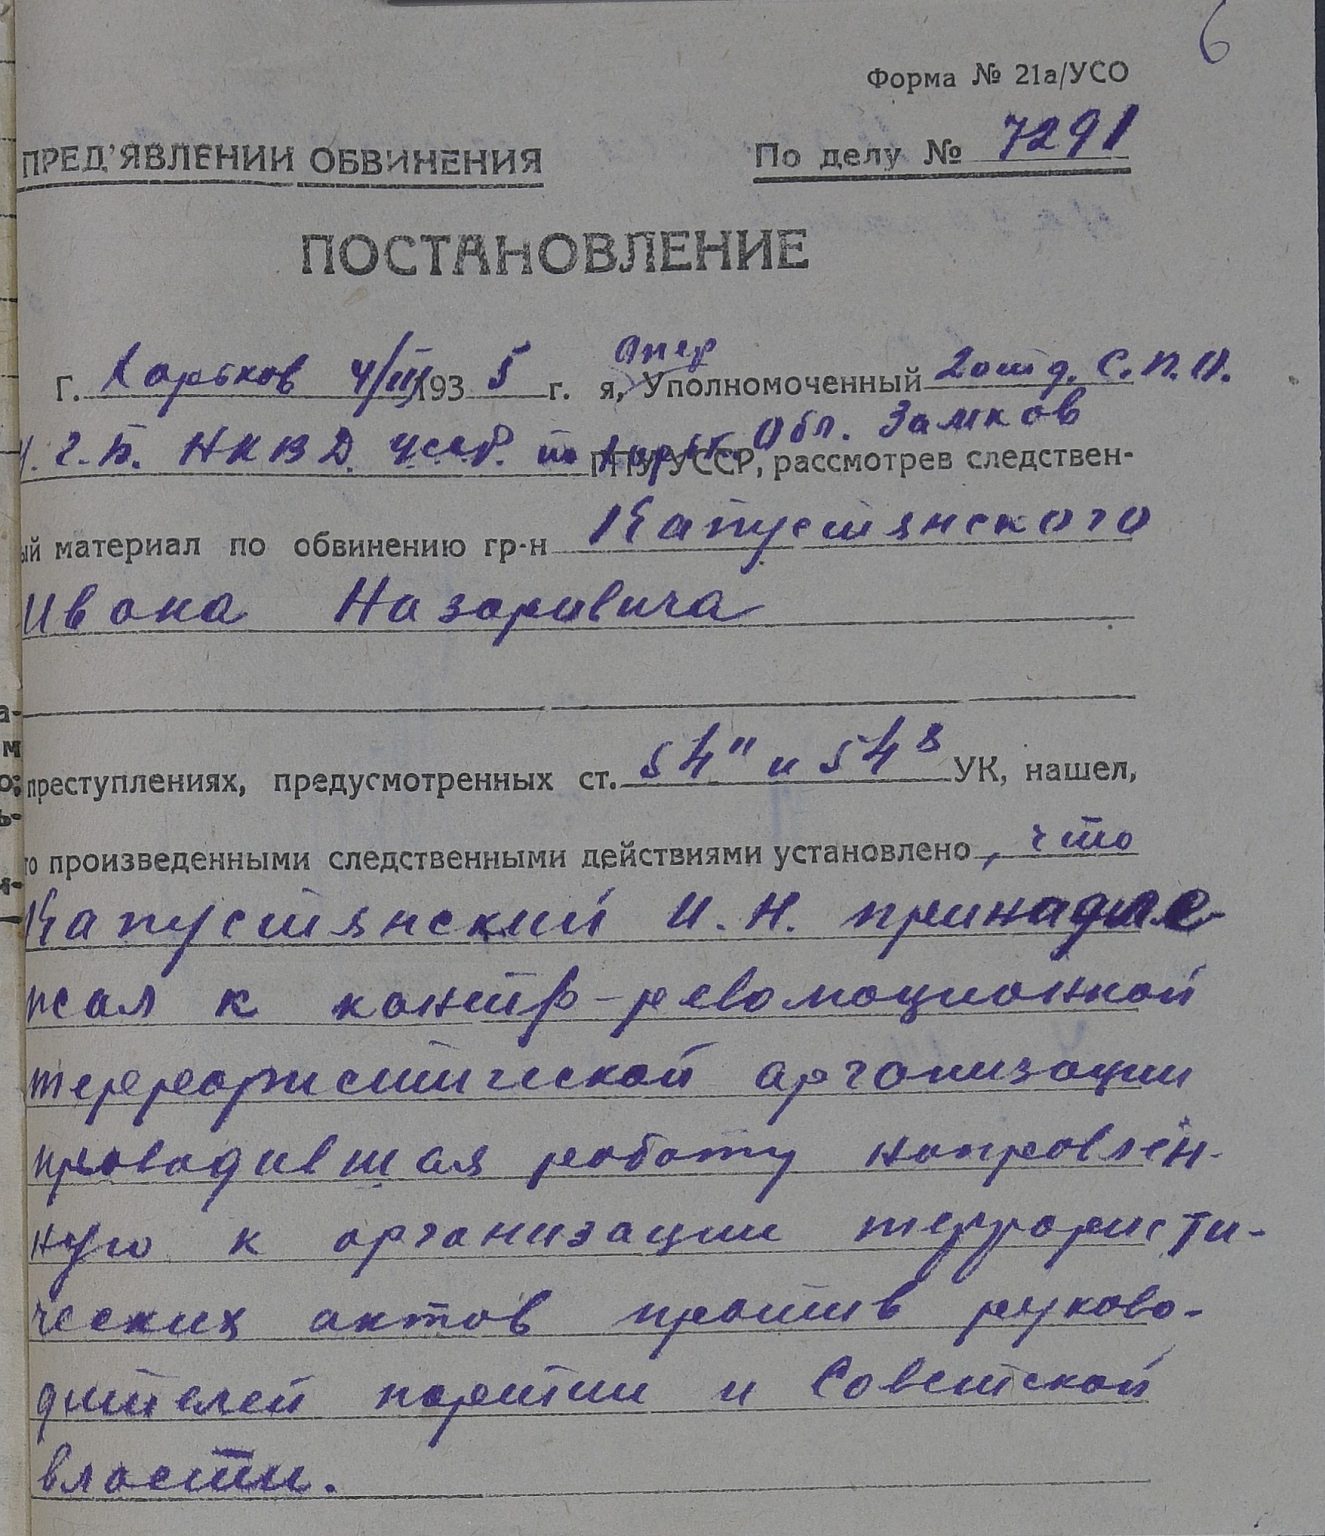 6
Форма № 21а/УСО
ПРЕД'ЯВЛЕНИИ ОБВИНЕНИЯ По делу № 7291
ПОСТАНОВЛЕНИЕ
Г. Харьков 4/III 1935 г. я, Опер Уполномоченный 2 отд. С.П.О.
У.Г.Б. НКВД УССР. по Харьк. Обл. Замков
ГПУ УССР, рассмотрев следствен-
ый материал по обвинению гр-н Капустянского
Ивана Назаровича
преступлениях, предусмотренных ст. 54" и 54 8 УК, нашел,
го произведенными следственными действиями установлено, что
Капустянский И. Н. принадле
жал к контр-революционной
террористической организации
проводившая работу направлен-
ную к организации террористи-
ческих актов против руково-
дителей партии и Советской
власти.